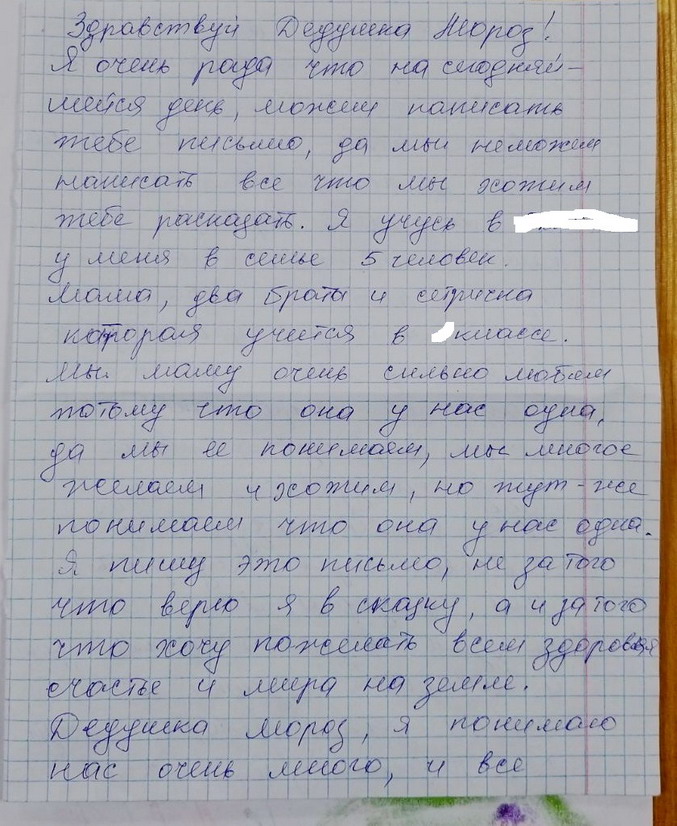 Здравствуй Дедушка Мороз!
Я очень рада что на сегодняй-
шейся день, можем написать
тебе письмо, да мы неможем
написать все что мы хотим
тебе расказать. Я учусь в
у меня в семье 5 человек.
Мама, два брата и сетричка
которая учится в классе.
Мы маму очень сильно любим
потому что она у нас одна,
да мы ее понимаем, мы многое
желаем и хотим, но тут-же
понимаем что она у нас одна.
Я пишу это письмо, не затого
что верю я в сказку, а и затого
что хочу пожелать всем здоровья
счастье и мира на земле.
Дедушка Мороз, я понимаю
нас очень много, и все